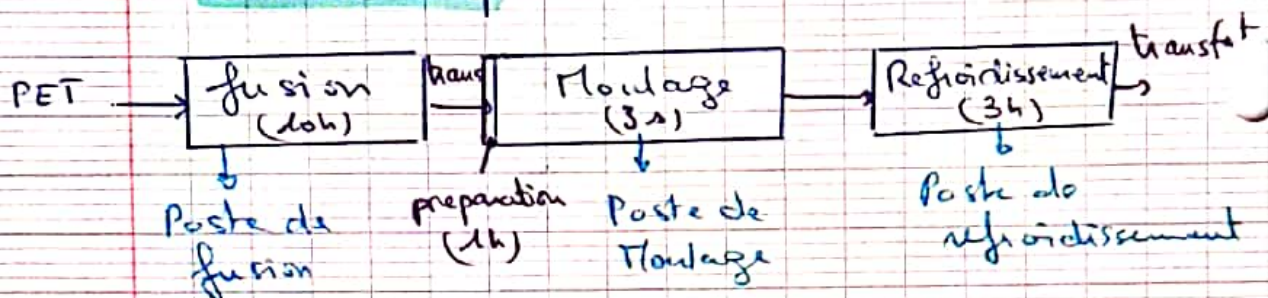 PET
fusion
(10h)
trans
Moulage
(3s)
Refroidissement
(3h)
transfert
preparation
(1h)
Poste de
fusion
Poste de
Moulage
Poste de
refroidissement